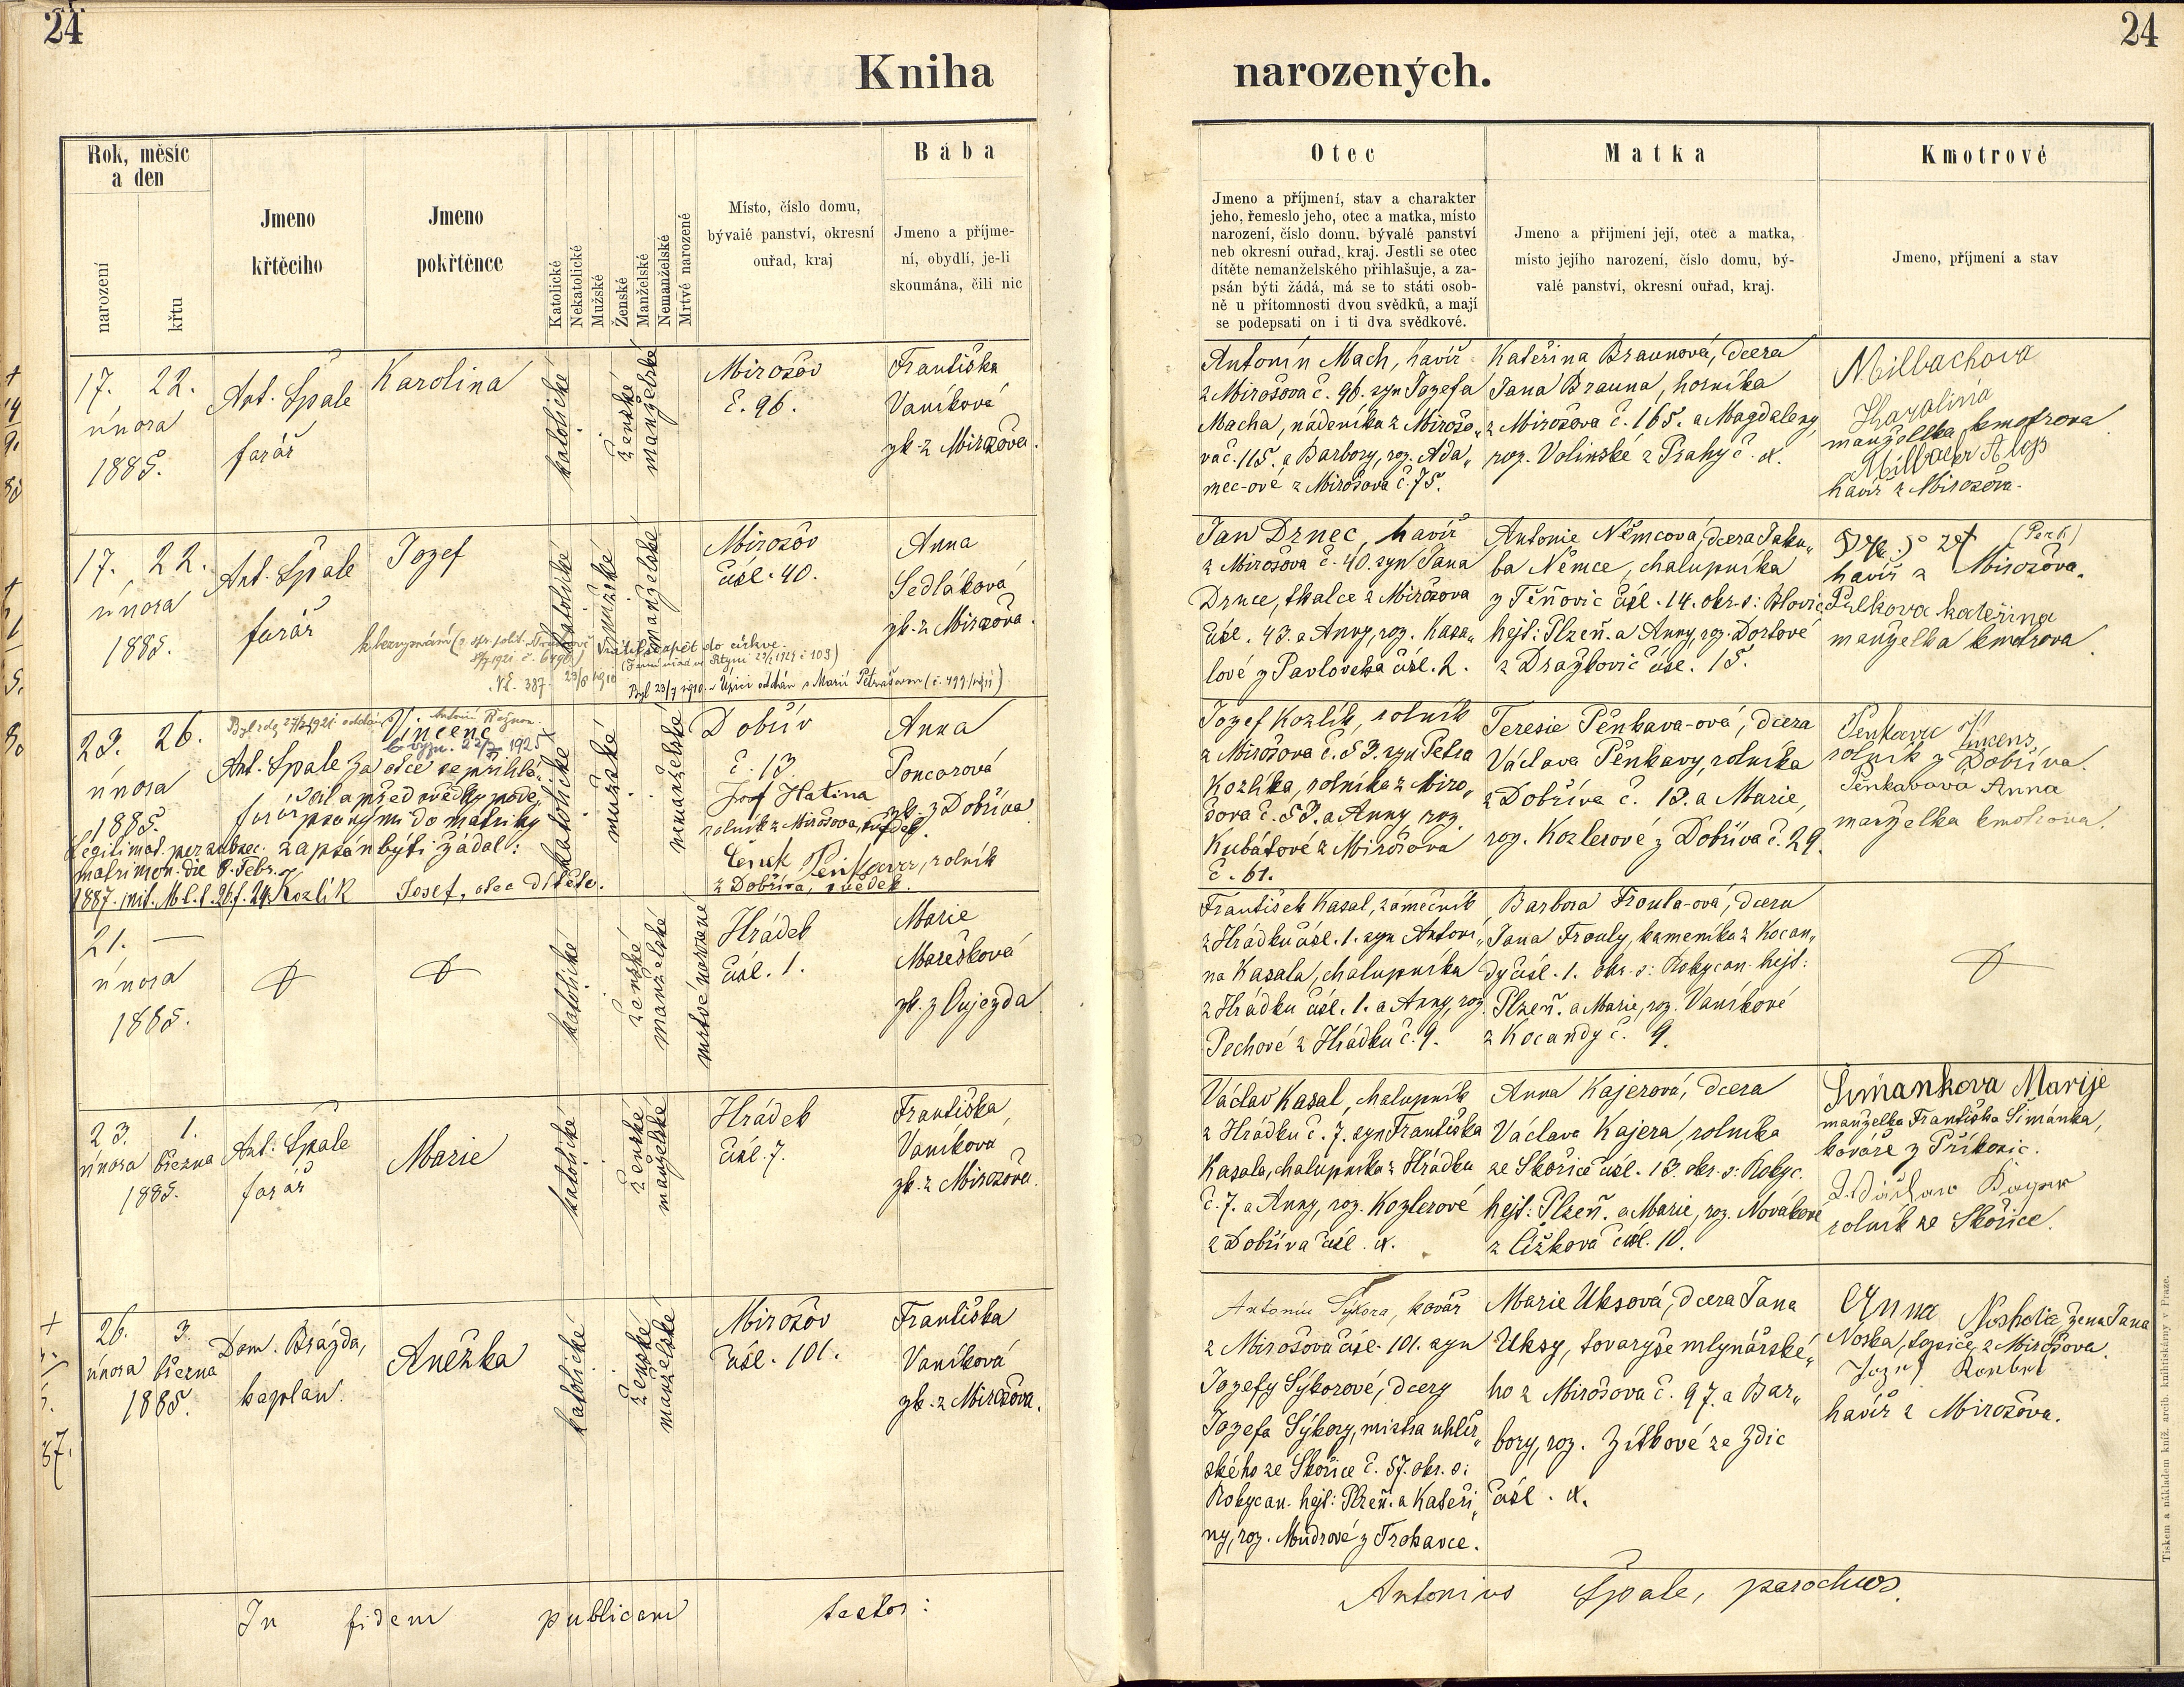 24
24
Kniha
narozených.
Rok, měsíc
a den
narození
křtu
Jmeno
křtěciho
Jmeno
pokřtěnce
Katolické
Nekatolické
Mužské
Ženské
Manželské
Nemanželské
Mrtvé narozené
Místo, číslo domu,
bývalé panství, okresní
ouřad, kraj
Bába
Jmeno a příjme-
ní, obydlí, je-li
skoumána, čili nic
Otec
Jmeno a příjmení, stav a charakter
jeho, řemeslo jeho, otec a matka, místo
narození, číslo domu, bývalé panství
neb okresní ouřad, kraj. Jestli se otec
dítěte nemanželského přihlašuje, a za-
psán býti žádá, má se to státi osob-
ně u přítomnosti dvou svědků, a mají
se podepsati on i ti dva svědkové.
Matka
Jmeno a přijmení její, otec a matka,
místo jejího narození, číslo domu, bý-
valé panství, okresní ouřad, kraj.
Kmotrové
Jmeno, příjmení a stav
17. 22.
února
1885.
Ant. Špale
farář
Karolina
katolické
ženské
manželské
Mirošov
č. 96.
Františka
Vaníková
zk. z Mirošova.
Antonín Mach, havíř
z Mirošova č. 96. syn Jozefa
Macha, nádeníka z Mirošo„
va č. 115. a Barbory, roz. Ada„
mec-ové z Mirošova č. 75.
Kateřina Braunová, dcera
Jana Brauna, horníka
z Mirošova č. 165. a Magdaleny,
roz. Volinské z Prahy č. x.
Milbachova
Karalina
manželka kmotrova
Milbachr Alojs
havíř z Mirošova.
17. 22.
února
1885.
Ant. Špale
farář
Jozef
katolické
mužské
manželské
Vrátil se zpět do církve
Mirošov
čísl. 40.
Anna
Sedláková
zk. z Mirošova.
Jan Drnec, havíř
z Mirošova č. 40. syn Jana
Drnce, tkalce z Mirošova
čísl. 43. a Anny, roz. Kasa„
lové z Pavlovska čísl. 2.
Antonie Němcová, dcera Jaku„
ba Němce, chalupníka
z Těňovic čísl. 14. okr. s: Blovic
hejt: Plzeň. a Anny, roz. Dortové
z Dražkovic čísl. 15.
havíř z Mirošova.
Pelkova kateřina
manželka kmotrova.
23. 26.
února
1885.
Vincenc
Ant. Špale
farář
Za otce se přihlá„
sil a před svědky pode„
psanými do matriky
zapsán býti žádal:
Legitimat. per subsec.
matrimon. die 8. Febr.
Kozlík Josef, otec dítěte.
katolické
mužské
nemanželské
Dobřív
č. 13.
Josef Hatina
rolník z Mirošova, svědek.
Čeněk Pěnkava, rolník
z Dobříva, svědek.
Anna
Poncarová
zk. z Dobříva
Jozef Kozlík, rolník
z Mirošova č. 53. syn Petra
Kozlíka, rolníka z Miro„
šova č. 53. a Anny roz.
Kubátové z Mirošova
č. 61.
Teresie Pěnkava-ová, dcera
Václava Pěnkavy, rolníka
z Dobříva č. 13. a Marie,
roz. Kozlerové z Dobříva č. 29.
rolník z Dobříva.
Pěnkavová Anna
manželka kmotrova.
21. —
února
1885.
katolické
ženské
manželské
mrtvé narozené
Hrádek
čísl. 1.
Marie
Marešková
zk. z Oujezda.
František Kasal, zámečník
z Hrádku čísl. 1. syn Antoni„
na Kasala, chalupníka
z Hrádku čísl. 1. a Anny, roz.
Pechové z Hrádku č. 9.
Barbora Froula-ová, dcera
Jana Frouly, kameníka z Kocan„
dy čísl. 1. okr. s: Rokycan hejt:
Plzeň. a Marie, roz. Vaníkové
z Kocandy č. 9.
23. 1.
února března
1885.
Ant: Špale
farář
Marie
katolické
ženské
manželské
Hrádek
čísl. 7.
Františka
Vaníkova
zk. z Mirošova.
Václav Kasal, chalupník
z Hrádku č. 7. syn Františka
Kasala, chalupníka z Hrádku
č. 7. a Anny, roz. Kozlerové
z Dobříva čísl. x.
Anna Kajerová, dcera
Václava Kajera, rolníka
ze Skořice čísl. 13. okr. s: Rokyc.
hejt: Plzeň. a Marie, roz. Novákové
z Čížkova čísl. 10.
Šimankova Marije
manželka Františka Šimánka,
kováře z Příkosic.
rolník ze Skořice.
26. 3.
února března
1885.
Dom. Brázda,
kaplan.
Anežka
katolické
ženské
manželské
Mirošov
čísl. 101.
Františka
Vaníková
zk. z Mirošova.
Antonín Sýkora, kovář
z Mirošova čísl. 101. syn
Jozefy Sýkorové, dcery
Jozefa Sýkory, mistra uhlíř„
ského ze Skořice č. 57. okr. s:
Rokycan. hejt: Plzeň. a Kateři„
ny, roz. Mudrové z Trokavce.
Marie Uksová, dcera Jana
Uksy, tovaryše mlynářské„
ho z Mirošova č. 97. a Bar„
bory, roz. Zítkové ze Zdic
čísl. x.
Anna Noskova žena Jana
Noska, topiče, z Mirošova.
havíř z Mirošova.
In fidem publicam testor:
Antonius Špale, parochus.
Tiskem a nákladem kníž. arcib. knihtiskárny v Praze.